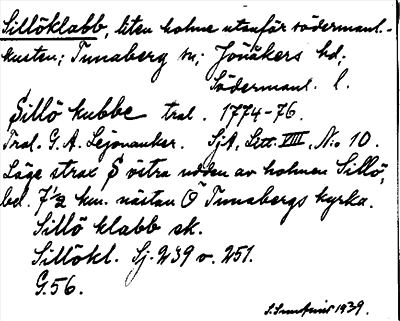 Sillöklabb, liten holme utanför södermanl.-
kusten; Tunaberg sn; Jönåkers hd;
Södermanl. l.
Sillö kubbe tral. 1774-76.
Tral. G. A. Lejonanker. SjA, Litt. VIII, N:o 10.
Läge strax S östra udden av holmen Sillö,
bel. 7½ km. nästan O Tunabergs kyrka.
Sillö klabb ek.
Sillökl. Sj. 239 o. 251.
G.56.
1939.